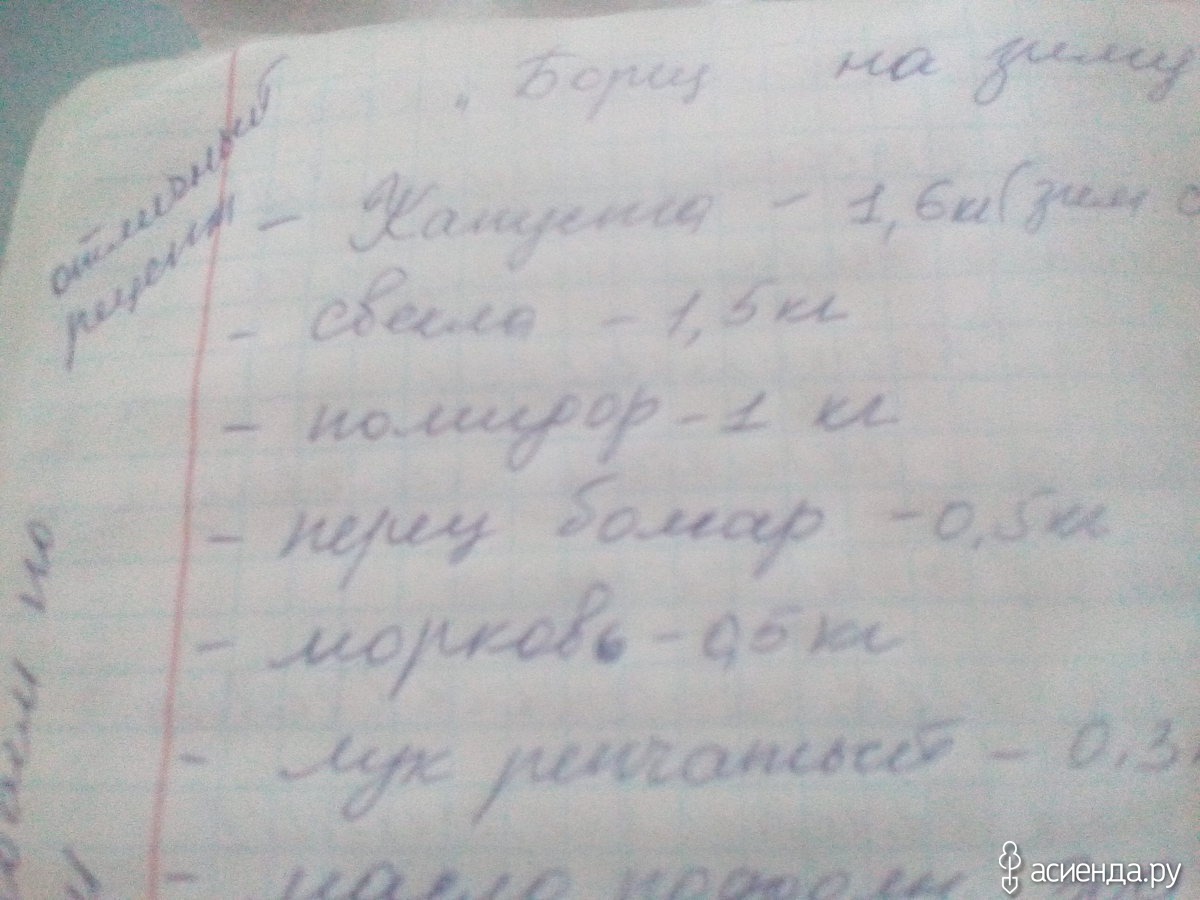 „Борщ на зиму
отличный
рецепт
- Капуста - 1,6кг (зим
- свекла - 1,5кг
- помидор - 1 кг
- перец болгар - 0,5кг
- морковь - 0,5 кг
- лук репчатый - 0,3
- масло
асиенда.ру